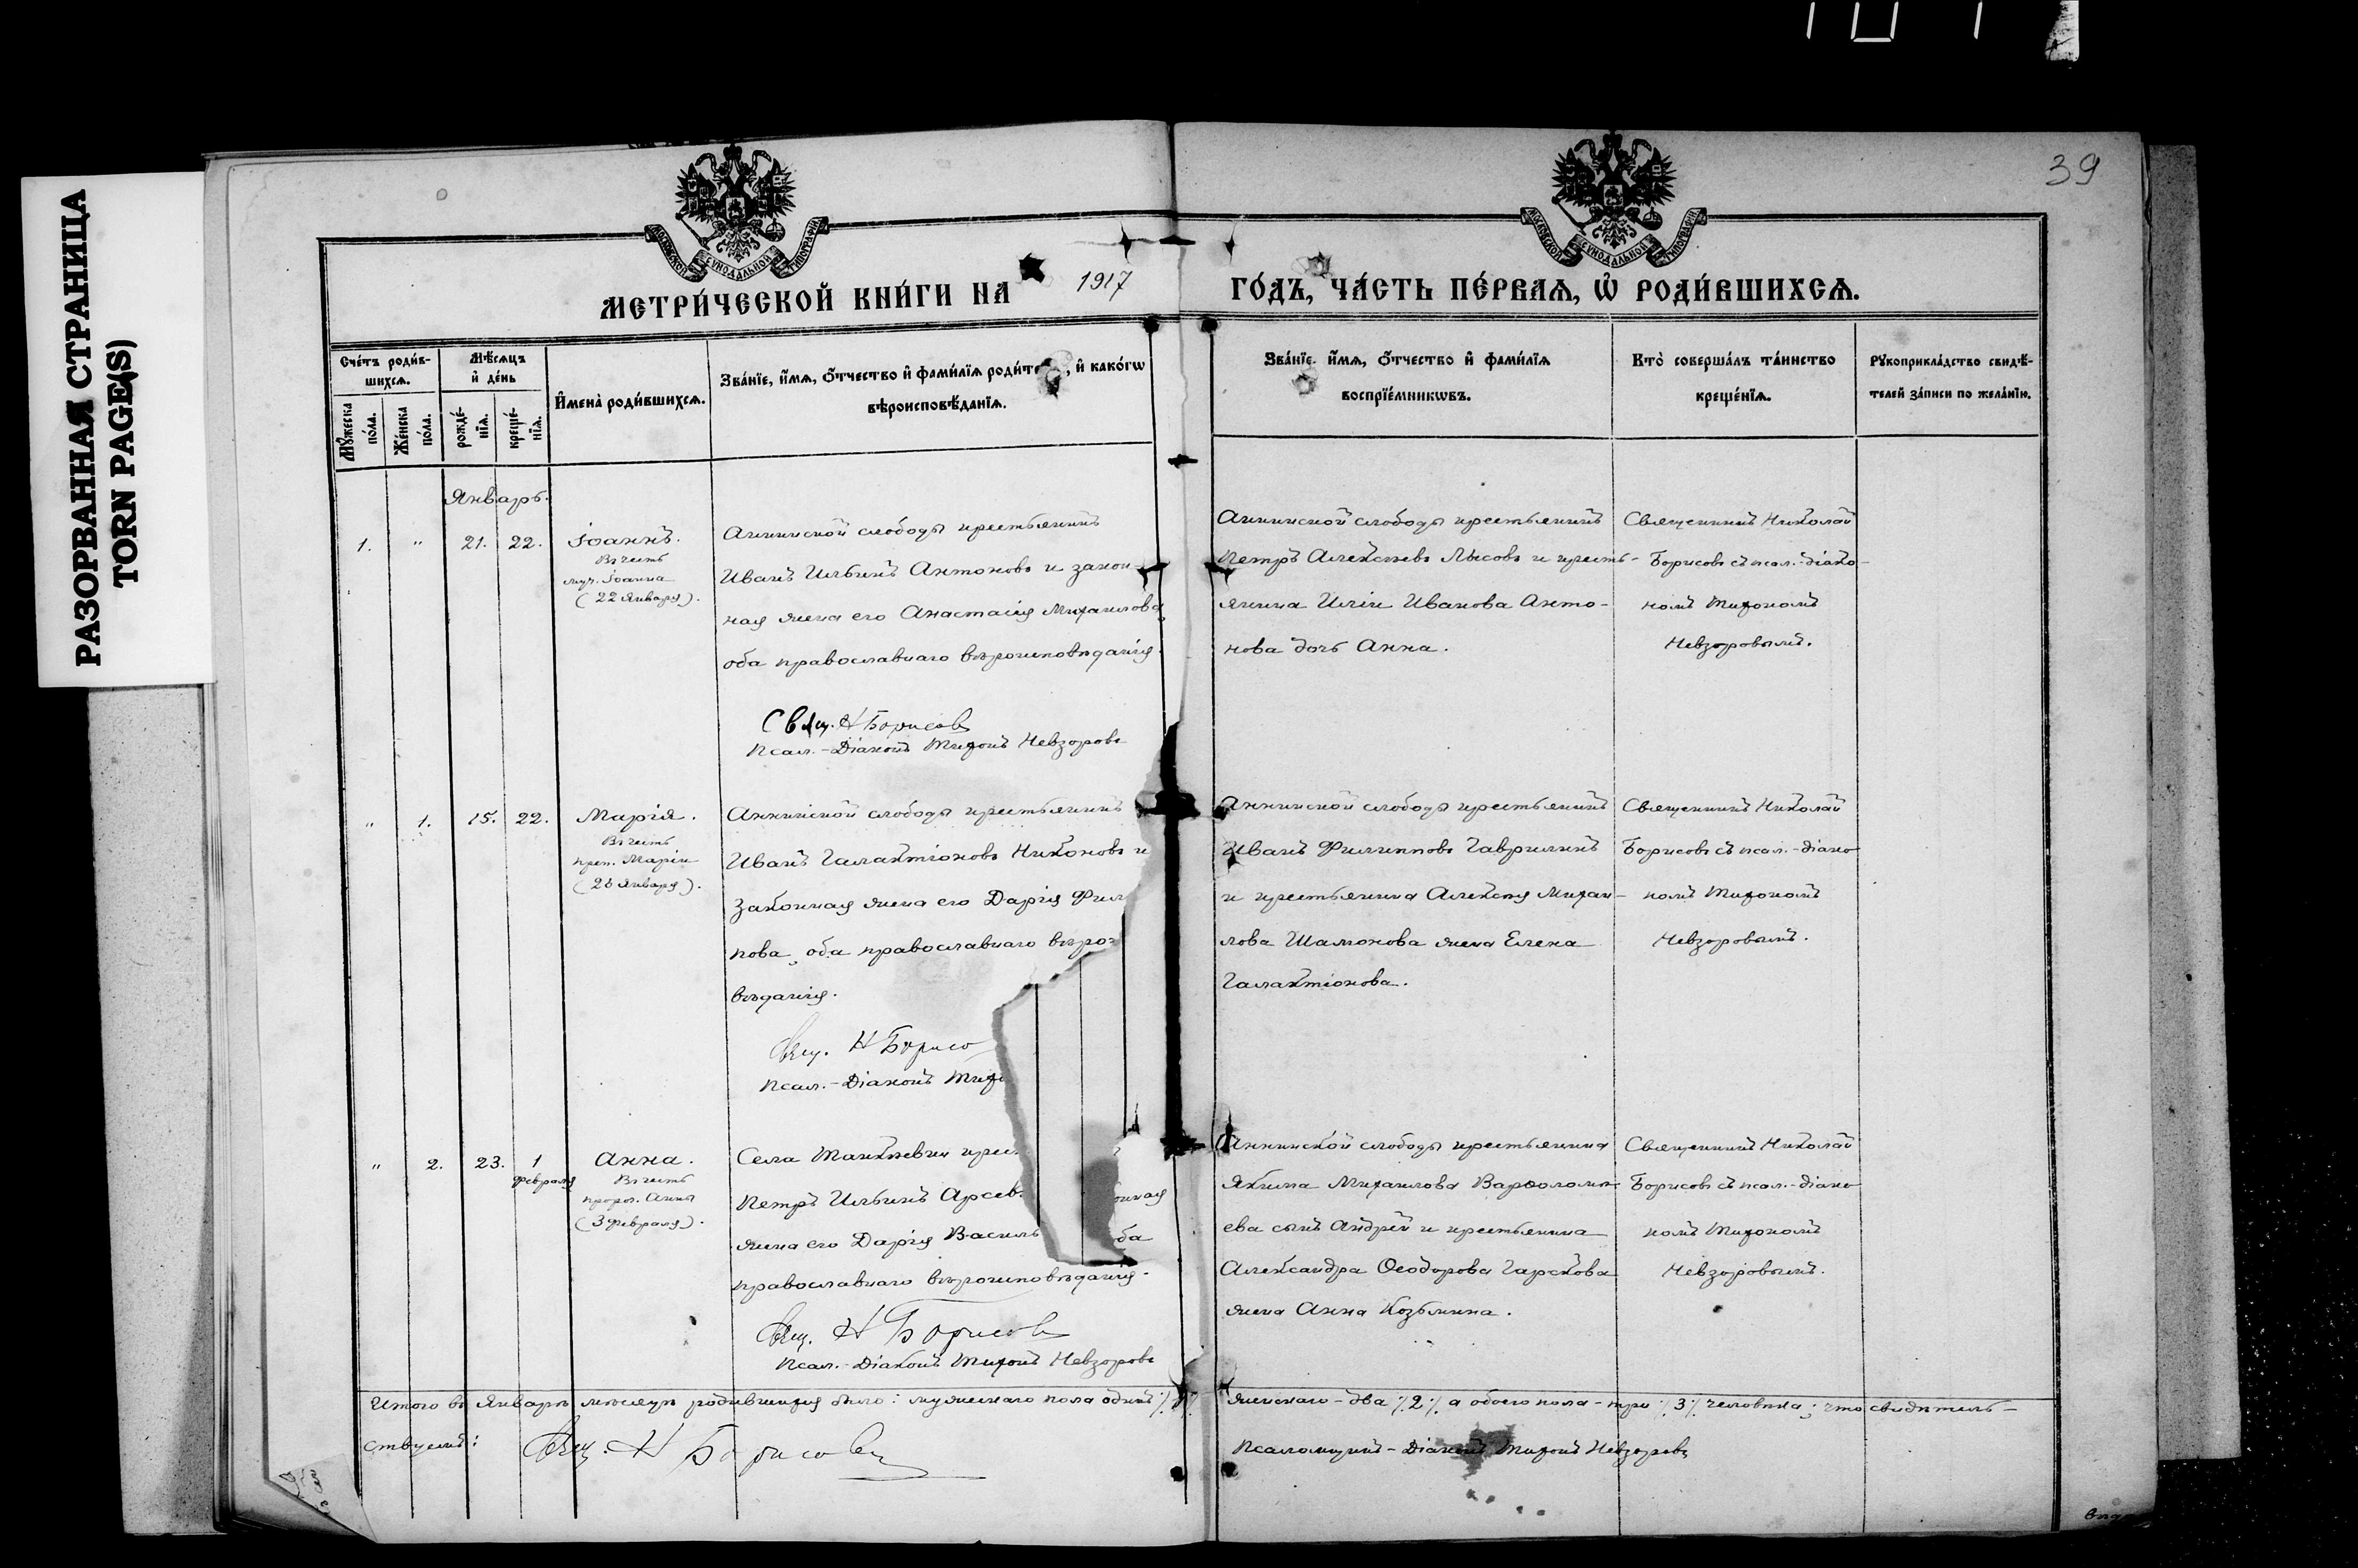 РАЗОРВАННАЯ СТРАНИЦА
TORN PAGE(S)
39
МОСКОВСКОЙ СУНОДАЛЬНОЙ ТИПОГРАФІИ
МОСКОВСКОЙ СУНОДАЛЬНОЙ ТИПОГРАФІИ
МЕТРИ́ЧЕСКОЙ КНИ́ГИ НА 1917 ГО́ДЪ, ЧА́СТЬ ПЕ́РВАѦ, Ѡ҆ РОДИ́ВШИХСѦ.
Сче́тъ роди́в-
шихсѧ.
Мѣ́сѧцъ
и҆ де́нь
Мꙋ́жеска
по́ла.
Же́нска
по́ла.
рожде́-
нїѧ.
креще́-
нїѧ.
И҆мена̀ роди́вшихсѧ.
Зва́нїе, и҆́мѧ, ѻ҆́тчество и҆ фами́лїѧ роди́те, и҆ како́гѡ
вѣроисповѣ́данїѧ.
Зва́нїе, и҆́мѧ, ѻ҆́тчество и҆ фами́лїѧ
воспрїе́мникѡвъ.
Кто̀ соверша́лъ та́инство
креще́нїѧ.
Рꙋкоприкла́дство свидѣ́-
телей за́писи по жела́нїю.
Январь.
1. " 21. 22. Іоаннъ.
Въ честь
муч. Іоанна
(22 Января).
Аннинской слободы крестьянинъ
Иванъ Ильинъ Антоновъ и закон-
ная жена его Анастасія Михаилова
оба православнаго вѣроисповѣданія.
Свящ. Н Борисов
Псал.-Діаконъ Тихонъ Невзоровъ
Аннинской слободы крестьянинъ
Петръ Алексѣевъ Лысовъ и кресть-
янина Иліи Иванова Анто-
нова дочь Анна.
Священникъ Николай
Борисовъ съ псал.-діако-
номъ Тихономъ
Невзоровымъ.
" 1. 15. 22. Марія.
Въ честь
преп. Маріи
(26 Января).
Аннинской слободы крестьянинъ
Иванъ Галактіоновъ Никоновъ и
законная жена его Дарія Фил
пова, оба православнаго вѣро
вѣданія.
Свящ. Н Борисо
Псал.-Діаконъ Тихо
Аннинской слободы крестьянинъ
Иванъ Филипповъ Гаврилинъ
и крестьянина Алексѣя Михаи-
лова Шамонова жена Елена
Галактіонова.
Священникъ Николай
Борисовъ съ псал.-діако
номъ Тихономъ
Невзоровымъ.
" 2. 23. 1 Февраля Анна.
Въ честь
прорoч. Анны
(3 Февраля).
Села крес
Петръ Ильинъ Арсев онная
жена его Дарія Василь ба
православнаго вѣроисповѣданія.
Свящ. Н Борисов
Псал.-Діаконъ Тихонъ Невзоровъ
Аннинской слободы крестьянина
Якима Михаилова Варѳоломе
ева сынъ Андрей и крестьянина
Александра Ѳеодорова Гарскова
жена Анна Козьмина.
Священникъ Николай
Борисовъ съ псал.-діако
номъ Тихономъ
Невзоровымъ.
Итого въ Январѣ мѣсяцѣ родившихся было: мужескаго пола одинъ женскаго - два ٪2٪ а обоего пола - три ٪3٪ человѣка; что свидѣтель-
ствуемъ: Свящ. Н Борисовъ
Псаломщикъ-Діаконъ Тихонъ Невзоровъ